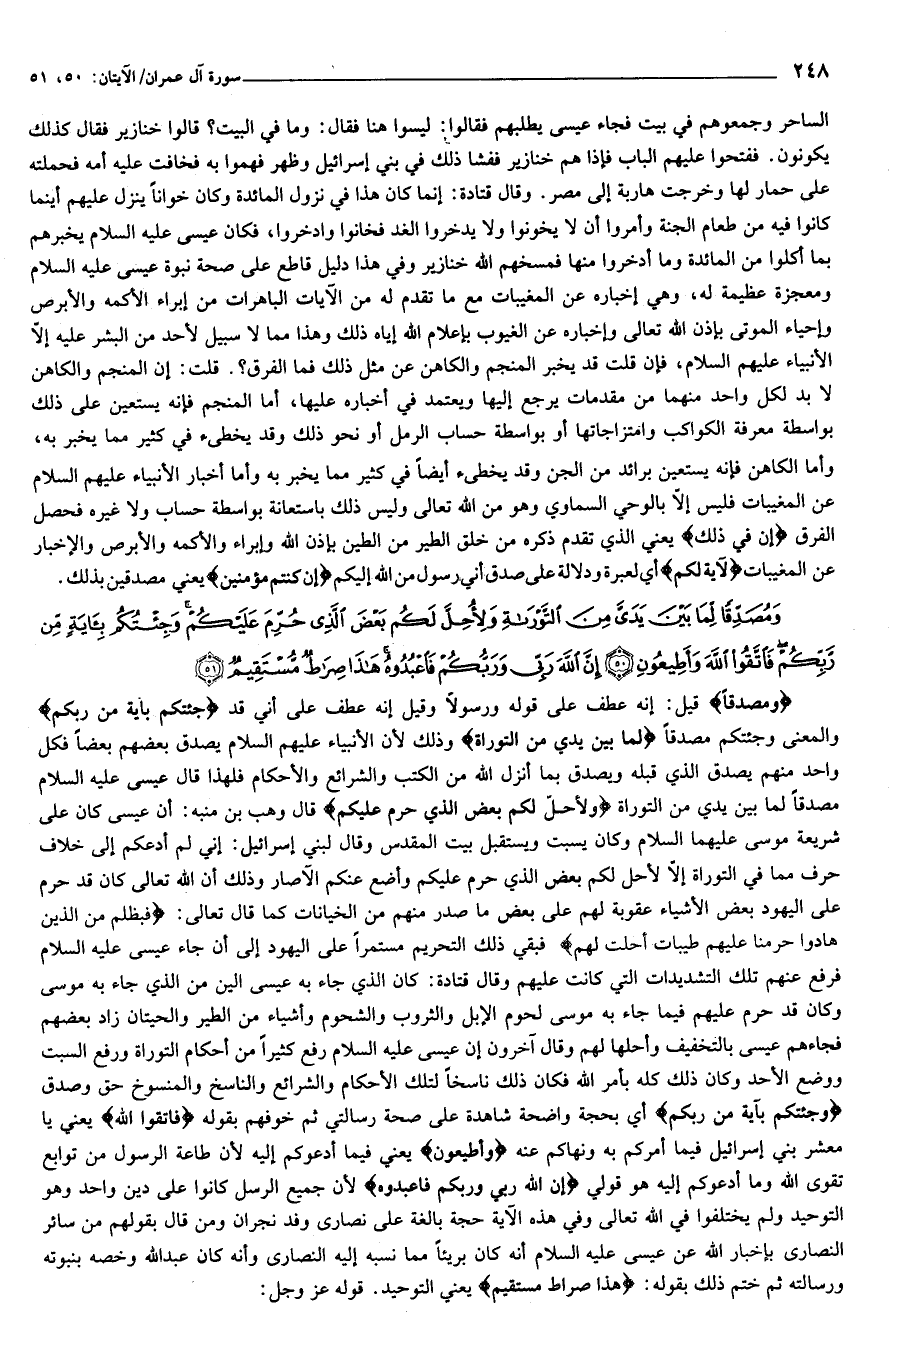 ٢٤٨ سورة آل عمران/ الآيتان: ٥٠، ٥١
الساحر وجمعوهم في بيت فجاء عيسى يطلبهم فقالوا: ليسوا هنا فقال: وما في البيت؟ قالوا خنازير فقال كذلك
يكونون. ففتحوا عليهم الباب فإذا هم خنازير ففشا ذلك في بني إسرائيل وظهر فهموا به فخافت عليه أمه فحملته
على حمار لها وخرجت هاربة إلى مصر. وقال قتادة: إنما كان هذا في نزول المائدة وكان خواناً ينزل عليهم أينما
كانوا فيه من طعام الجنة وأمروا أن لا يخونوا ولا يدخروا الغد فخانوا وادخروا، فكان عيسى عليه السلام يخبرهم
بما أكلوا من المائدة وما أدخروا منها فمسخهم الله خنازير وفي هذا دليل قاطع على صحة نبوة عيسى عليه السلام
ومعجزة عظيمة له، وهي إخباره عن المغيبات مع ما تقدم له من الآيات الباهرات من إبراء الأكمه والأبرص
وإحياء الموتى بإذن الله تعالى وإخباره عن الغيوب بإعلام الله إياه ذلك وهذا مما لا سبيل لأحد من البشر عليه إلاّ
الأنبياء عليهم السلام، فإن قلت قد يخبر المنجم والكاهن عن مثل ذلك فما الفرق؟. قلت: إن المنجم والكاهن
لا بد لكل واحد منهما من مقدمات يرجع إليها ويعتمد في أخباره عليها، أما المنجم فإنه يستعين على ذلك
بواسطة معرفة الكواكب وامتزاجاتها أو بواسطة حساب الرمل أو نحو ذلك وقد يخطىء في كثير مما يخبر به،
وأما الكاهن فإنه يستعين برائد من الجن وقد يخطىء أيضاً في كثير مما يخبر به وأما أخبار الأنبياء عليهم السلام
عن المغيبات فليس إلاّ بالوحي السماوي وهو من الله تعالى وليس ذلك باستعانة بواسطة حساب ولا غيره فحصل
الفرق ﴿إن في ذلك﴾ يعني الذي تقدم ذكره من خلق الطير من الطين بإذن الله وإبراء والأكمه والأبرص والإخبار
عن المغيبات ﴿لآية لكم﴾ أي لعبرة ودلالة على صدق أني رسول من الله إليكم ﴿إن كنتم مؤمنين﴾ يعني مصدقين بذلك.
وَمُصَدِّقًا لِّمَا بَيْنَ يَدَىَّ مِنَ ٱلتَّوْرَىٰةِ وَلِأُحِلَّ لَكُم بَعْضَ ٱلَّذِى حُرِّمَ عَلَيْكُمْ ۚ وَجِئْتُكُم بِـَٔايَةٍ مِّن
رَّبِّكُمْ فَٱتَّقُوا۟ ٱللَّهَ وَأَطِيعُونِ ﴿٥٠﴾ إِنَّ ٱللَّهَ رَبِّى وَرَبُّكُمْ فَٱعْبُدُوهُ ۗ هَٰذَا صِرَٰطٌ مُّسْتَقِيمٌ ﴿٥١﴾
﴿ومصدقاً﴾ قيل: إنه عطف على قوله ورسولاً وقيل إنه عطف على أني قد ﴿جئتكم بآية من ربكم﴾
والمعنى وجئتكم مصدقاً ﴿لما بين يدي من التوراة﴾ وذلك لأن الأنبياء عليهم السلام يصدق بعضهم بعضاً فكل
واحد منهم يصدق الذي قبله ويصدق بما أنزل الله من الكتب والشرائع والأحكام فلهذا قال عيسى عليه السلام
مصدقاً لما بين يدي من التوراة ﴿ولأحلّ لكم بعض الذي حرم عليكم﴾ قال وهب بن منبه: أن عيسى كان على
شريعة موسى عليهما السلام وكان يسبت ويستقبل بيت المقدس وقال لبني إسرائيل: إني لم أدعكم إلى خلاف
حرف مما في التوراة إلاّ لأحل لكم بعض الذي حرم عليكم وأضع عنكم الآصار وذلك أن الله تعالى كان قد حرم
على اليهود بعض الأشياء عقوبة لهم على بعض ما صدر منهم من الخيانات كما قال تعالى: ﴿فبظلم من الذين
هادوا حرمنا عليهم طيبات أحلت لهم﴾ فبقي ذلك التحريم مستمراً على اليهود إلى أن جاء عيسى عليه السلام
فرفع عنهم تلك التشديدات التي كانت عليهم وقال قتادة: كان الذي جاء به عيسى الين من الذي جاء به موسى
وكان قد حرم عليهم فيما جاء به موسى لحوم الإبل والثروب والشحوم وأشياء من الطير والحيتان زاد بعضهم
فجاءهم عيسى بالتخفيف وأحلها لهم وقال آخرون إن عيسى عليه السلام رفع كثيراً من أحكام التوراة ورفع السبت
ووضع الأحد وكان ذلك كله بأمر الله فكان ذلك ناسخاً لتلك الأحكام والشرائع والناسخ والمنسوخ حق وصدق
﴿وجئتكم بآية من ربكم﴾ أي بحجة واضحة شاهدة على صحة رسالتي ثم خوفهم بقوله ﴿فاتقوا الله﴾ يعني يا
معشر بني إسرائيل فيما أمركم به ونهاكم عنه ﴿وأطيعون﴾ يعني فيما أدعوكم إليه لأن طاعة الرسول من توابع
تقوى الله وما أدعوكم إليه هو قولي ﴿إن الله ربي وربكم فاعبدوه﴾ لأن جميع الرسل كانوا على دين واحد وهو
التوحيد ولم يختلفوا في الله تعالى وفي هذه الآية حجة بالغة على نصارى وفد نجران ومن قال بقولهم من سائر
النصارى بإخبار الله عن عيسى عليه السلام أنه كان بريئاً مما نسبه إليه النصارى وأنه كان عبدالله وخصه بنبوته
ورسالته ثم ختم ذلك بقوله: ﴿هذا صراط مستقيم﴾ يعني التوحيد. قوله عز وجل: